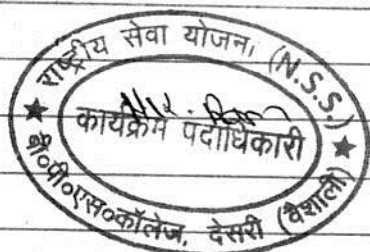 राष्ट्रीय सेवा योजना, (N.S.S.)
कार्यक्रम पदाधिकारी
बी०पी०एस०कॉलेज, देसरी (वैशाली)